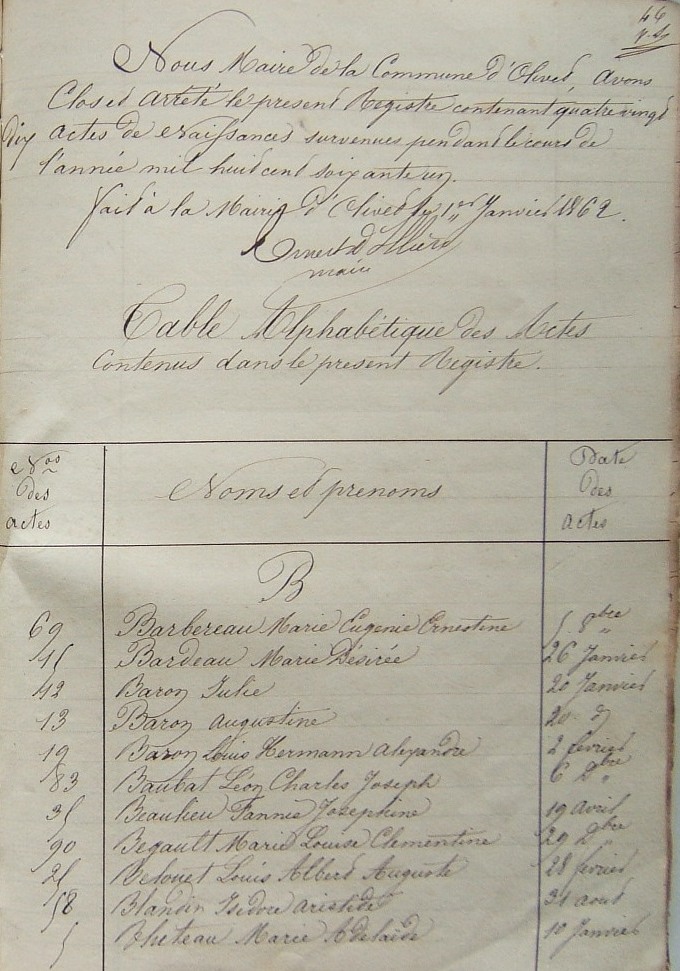 46
Nous Maire de la Commune d'Olivet, avons
Clos et arrêté le present Registre contenant quatre vingt
Dix actes de Naissances survenues pendant le cours de
l'année mil huit cent soixante un.
fait à la Mairie d'Olivet le 1er Janvier 1862.
Ernest d'Illiers
maire
Table Alphabétique des Actes
Contenus dans le present Registre.
Nos des actes
Noms et prenoms
Date des actes
B
69 Barbereau Marie Eugenie Ernestine 5 8bre "
15 Bardeau Marie Désirée 26 Janvier
12 Baron Julie 20 Janvier
13 Baron Augustine 20 d
19 Baron Louis Hermann Alexandre 2 fevrier
83 Baubat Léon Charles Joseph 6 Xbre "
35 Beaulieu Fannie Josephine 19 avril
90 Begault Marie Louise Clementine 29 Xbre "
25 Belouet Louis Albert Auguste 28 fevrier
58 Blandin Isidore Aristide 31 aout
5 Marie Adelaïde 10 Janvier